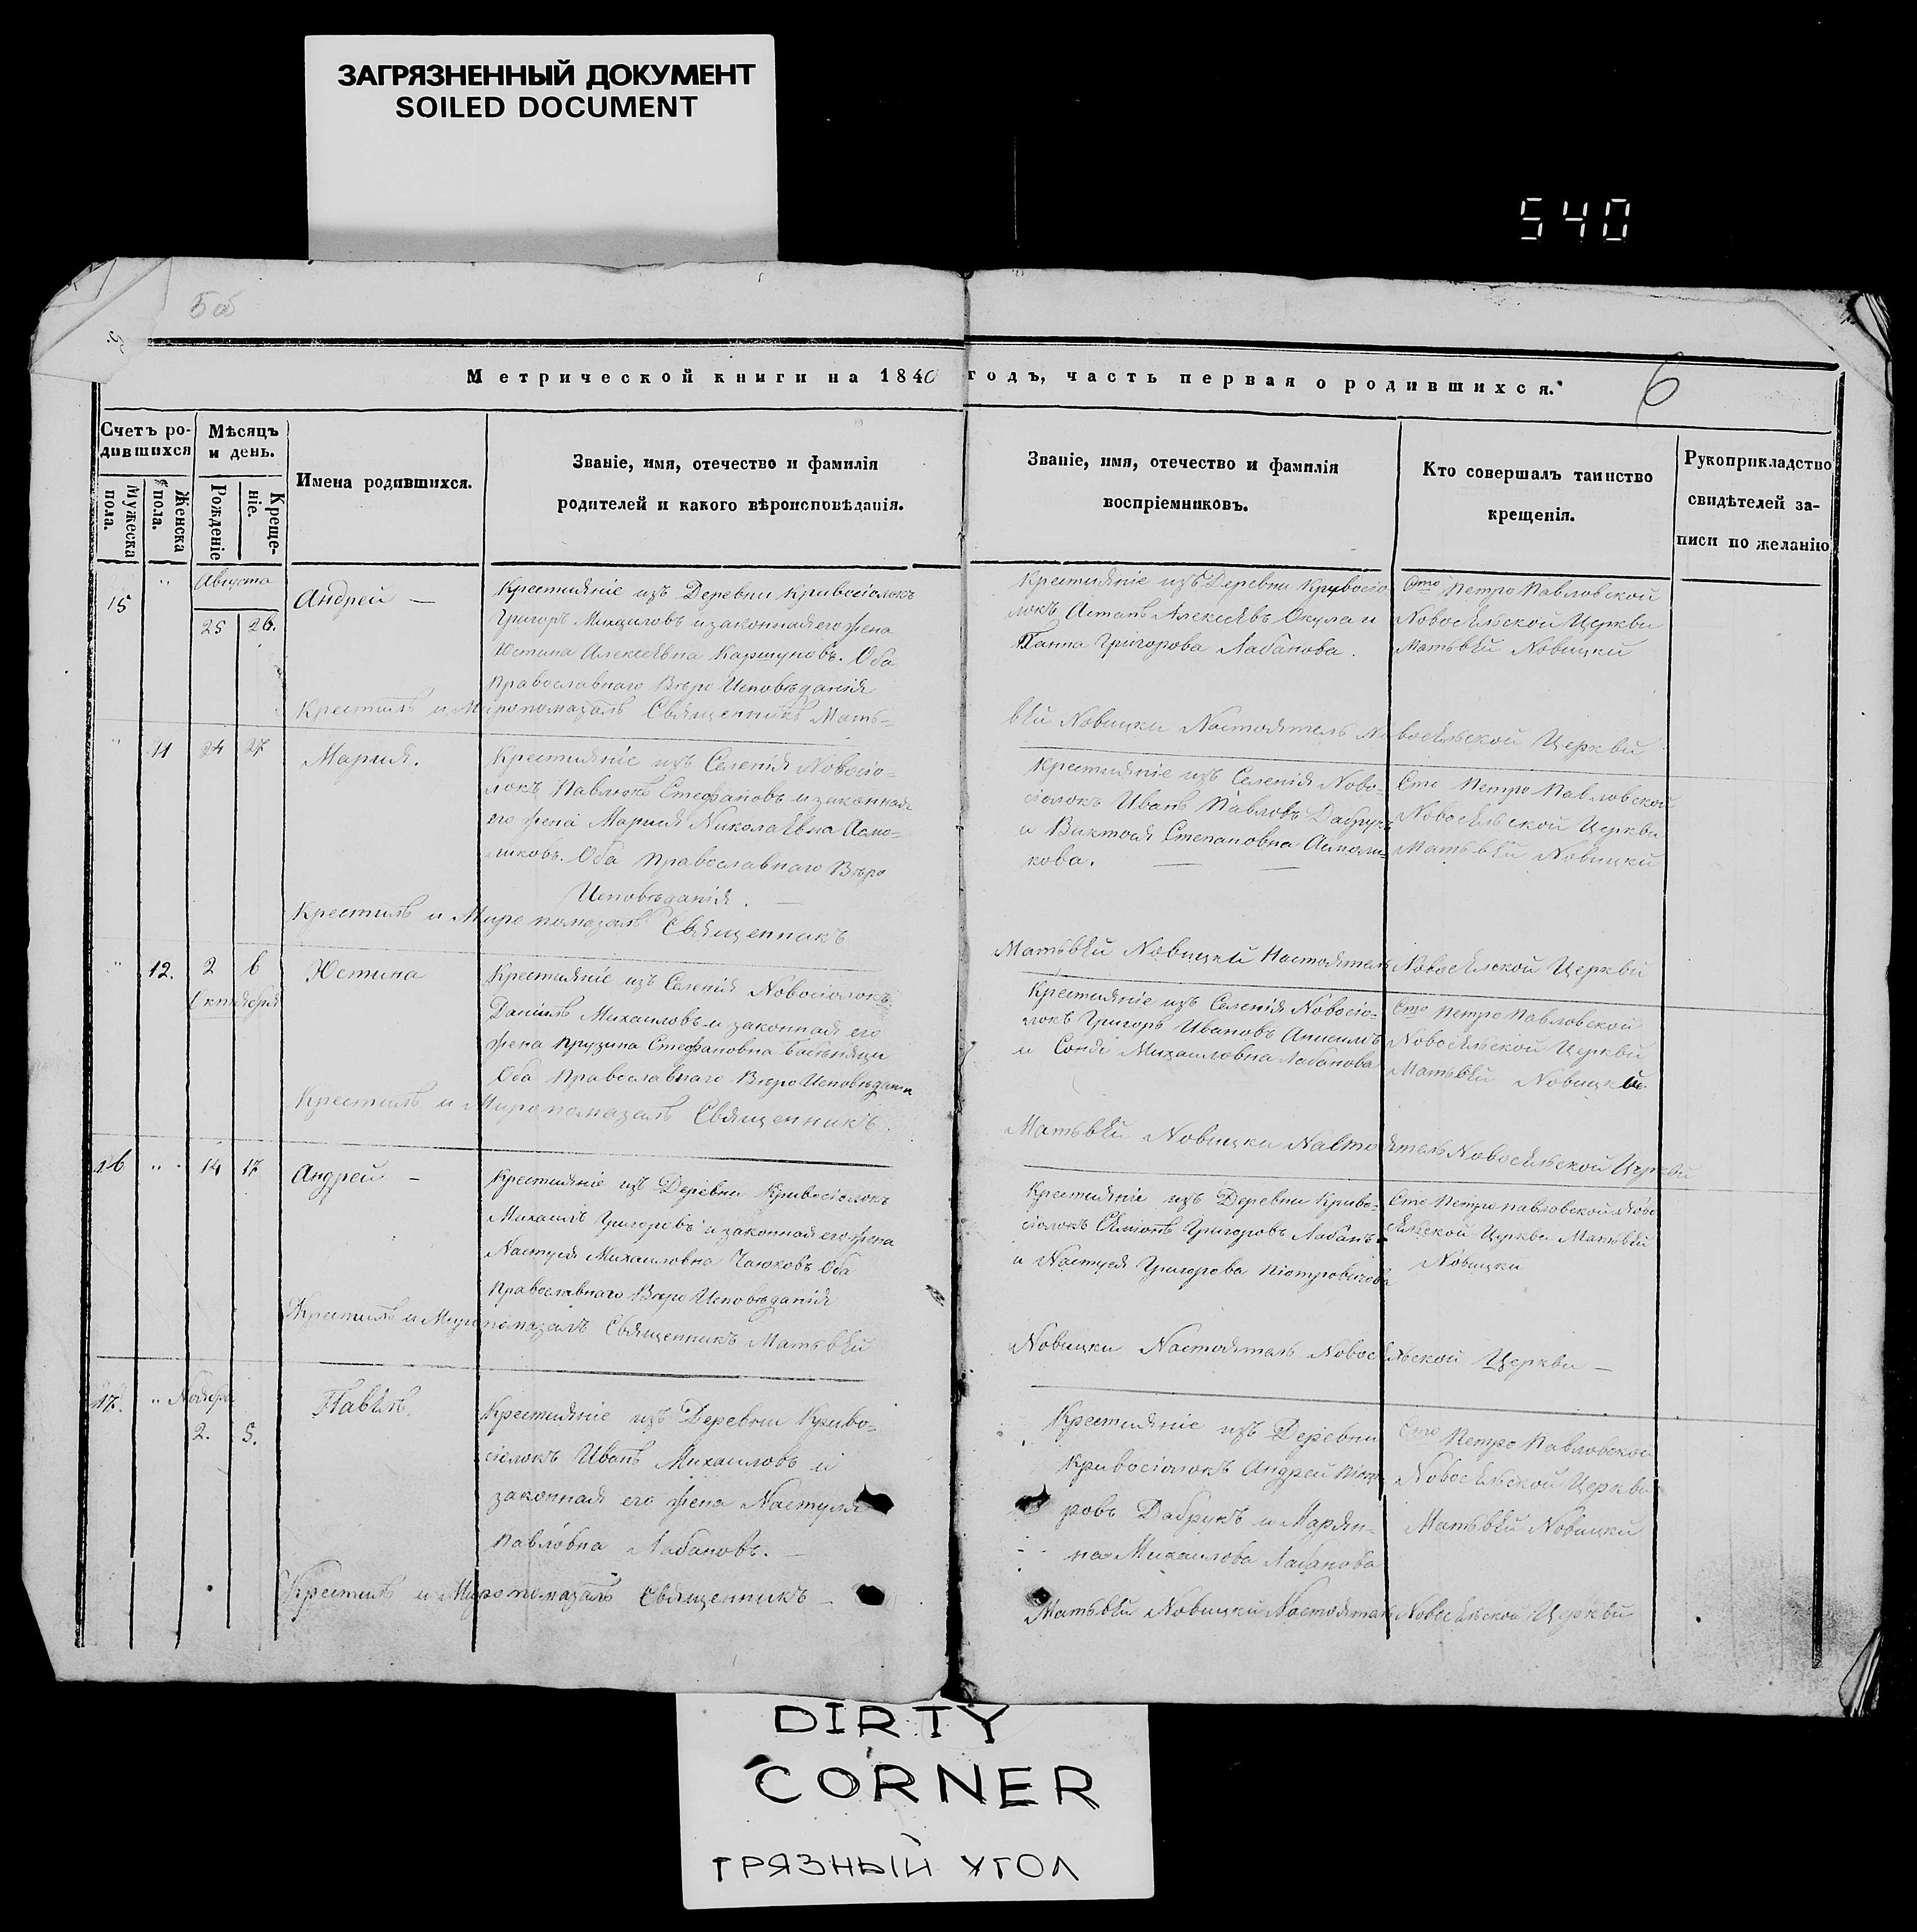 ЗАГРЯЗНЕННЫЙ ДОКУМЕНТ
SOILED DOCUMENT
540
5об
Метрической книги на 1840 годъ, часть первая о родившихся.
6
Счетъ ро-
дившихся
Мужеска пола.
Женска пола.
Мѣсяцъ
и день.
Рожденіе
Креще-
ніе.
Имена родившихся.
Званіе, имя, отечество и фамилія
родителей и какого вѣроисповѣданія.
Званіе, имя, отечество и фамилія
воспріемниковъ.
Кто совершалъ таинство
крещенія.
Рукоприкладство
свидѣтелей за-
писи по желанію
Августа
15 " 25 26.
Андрей —
Крестияніе изъ Деревни Кривосіолокъ
Григоръ Михаиловъ и законная его жена
Юстина Алексѣевна Каршуновъ. Оба
Православнаго Вѣро Исповѣданія
Крестияніе изъ Деревни Кривосіо
локъ Астапъ Алексѣевъ Окула и
Ганна Григорова Лабанова.
Сто Петро Павловской
Новосѣльской Церкви
Матьвѣй Новицки
Крестилъ и Миропомазалъ Священникъ Мать-
вѣй Новицки Настоятель Новосѣльской Церкви
" 11 24 27
Мария.
Крестияніе изъ Селенія Новосіо-
локъ Павлюкъ Стефановъ и законная
его жена Мария Николаѣвна Асмо-
ликовъ. Оба Православнаго Вѣро
Исповѣданія. —
Крестияніе изъ Селенія Ново-
сіолокъ Иванъ Павловъ Дабрукъ
и Виктося Степановна Асмоли-
кова. — —
Сто Петро Павловской
Новосѣльской Церкви
Матьвѣй Новицки
Крестилъ и Миропомазалъ Священникъ
Матьвѣй Новицкій Настоятель Новосѣлской Церкви
" 12. 2 6
Октября
Юстина
Крестияніе изъ Селенія Новосіолокъ
Данiилъ Михаиловъ и законная его
жена Прузина Стефановна
Оба Православнаго Вѣро Исповѣдания
Крестияніе изъ Селенія Новосіо-
локъ Григоръ Ивановъ
и Сондя Михаиловна Лабанова
Сто Петро Павловской
Новосѣльской Церкви
Матьвѣй Новицкій
Крестилъ и Миропомазалъ Священникъ.
Матьвѣй Новицки Настоятель Новосѣльской Церкви
16 " 14 17
Андрей —
Крестияніе изъ Деревни Кривосіолокъ
Михаилъ Григоровъ и законная его жена
Настуся Михаиловна Чаюковъ Оба
Православнаго Вѣро Исповѣданія
Крестияніе изъ Деревни Криво-
сіолокъ Сяміонъ Григоровъ Лабанъ
и Настуся Григорова Піотровичова
Сто Петро Павловской Ново
сѣльской Церкви Матьвѣй
Новицки
Крестилъ и Миропомазалъ Священникъ Матьвѣй
Новицки Настоятель Новосѣльской Церкви —
Ноября
17. " 2. 5.
Павѣлъ.
Крестияніе изъ Деревни Криво-
сіолокъ Иванъ Михаиловъ и
законная его жена Настуля
Павловна Лабановъ. —
Крестияніе изъ Деревни
Кривосіолокъ Андрей Піот
ровъ Дабрукъ и Марян-
на Михаилова Лабанова
Сто Петро Павловской
Новосѣльской Церкви
Матьвѣй Новицки
Крестилъ и Миропомазалъ Священникъ —
Матьвѣй Новицки Настоятель Новосѣльской Церкви
DIRTY
CORNER
ГРЯЗНЫЙ УГОЛ